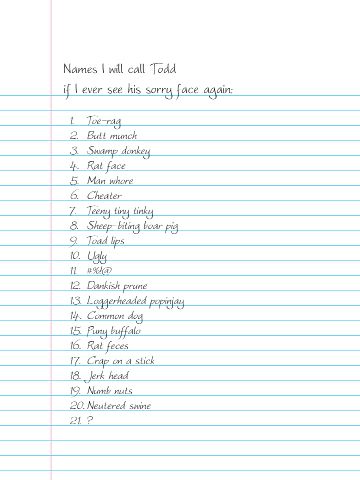 Names I will call Todd
if I ever see his sorry face again:
1. Toe-rag
2. Butt munch
3. Swamp donkey
4. Rat face
5. Man whore
6. Cheater
7. Teeny tiny tinky
8. Sheep-biting boar pig
9. Toad lips
10. Ugly
11. #%!@
12. Dankish prune
13. Loggerheaded popinjay
14. Common dog
15. Puny buffalo
16. Rat feces
17. Crap on a stick
18. Jerk head
19. Numb nuts
20. Neutered swine
21. ?